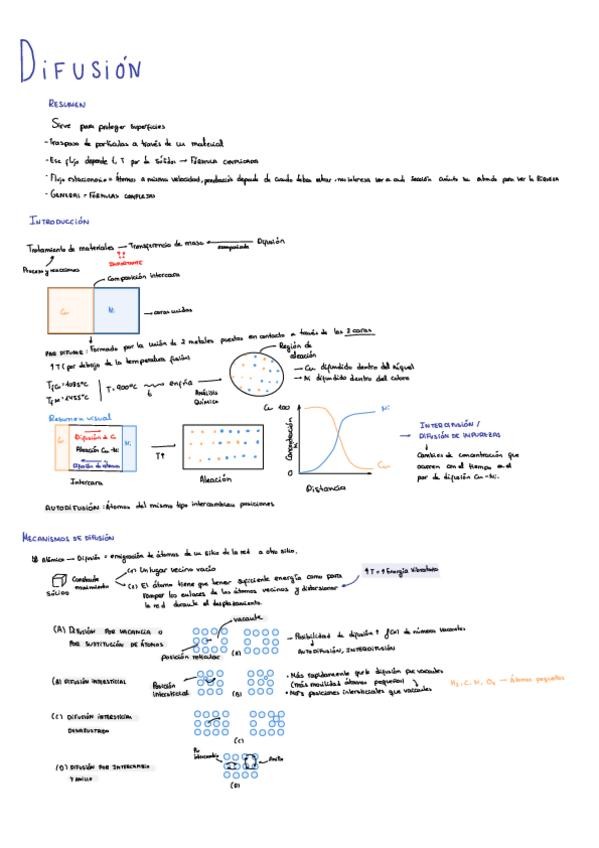 DIFUSIÓN
RESUMEN
Sirve para proteger superficies
- Traspaso de partículas a través de un material
- Ese flujo depende t, T par de sólidos → Fórmula complicada
- Flujo estacionario = Átomos a misma velocidad, depende de cuando deben estar
- GENERAL = FÓRMULAS COMPLEJAS
INTRODUCCIÓN
Tratamiento de materiales — Transferencia de masa ← Difusión
Procesos y reacciones
IMPORTANTE
Composición intercara
Cu
Ni
caras unidas
PAR DIFUSOR: Formado por la unión de 2 metales puestos en contacto a través de las 2 caras
↑T (por debajo de la temperatura fusión)
T = 900ºC
t
enfría
Análisis Químico
Región de aleación
Cu difundido dentro del níquel
Ni difundido dentro del cobre
Resumen visual
Cu
Difusión de Cu
Aleación Cu-Ni
Ni
Intercara
T↑
Aleación
Cu 100
Concentración
0
Ni
Cu
Distancia
INTERDIFUSIÓN /
DIFUSIÓN DE IMPUREZAS
Cambios de concentración que
ocurren con el tiempo en el
par de difusión Cu-Ni.
AUTODIFUSIÓN: Átomos del mismo tipo intercambian posiciones
MECANISMOS DE DIFUSIÓN
Atómico — Difusión = emigración de átomos de un sitio de la red a otro sitio.
Sólidos
Constante movimiento
(1) Un lugar vecino vacío
(2) El átomo tiene que tener suficiente energía como para
romper los enlaces de los átomos vecinos y distorsionar
la red durante el desplazamiento.
↑T = ↑Energía Vibratoria
(A) DIFUSIÓN POR VACANCIA O
POR SUSTITUCIÓN DE ÁTOMOS
vacante
posición reticular
(A)
Posibilidad de difusión ↑ f(x) de número vacantes
AUTODIFUSIÓN, INTERDIFUSIÓN
(B) DIFUSIÓN INTERSTICIAL
Posición intersticial
(B)
• Más rápidamente que la difusión por vacantes
(más movilidad átomos pequeños)
• Más posiciones intersticiales que vacantes
H₂, C, N, O₂ — átomos pequeños
(C) DIFUSIÓN INTERSTICIAL
DESAJUSTADA
(C)
(D) DIFUSIÓN POR INTERCAMBIO
Y ANILLO
intercambio
Anillo
(D)